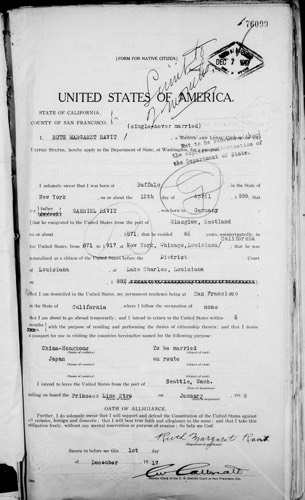 76099
[FORM FOR NATIVE CITIZEN.]
DEC 7 1917
Limit to
UNITED STATES OF AMERICA.
(single, never married)
STATE OF CALIFORNIA,
COUNTY OF SAN FRANCISCO.
I, RUTH MARGARET RAVIT / , A NATIVE AND LOYAL CITIZEN OF THE
Not to be
UNITED STATES, hereby apply to the Department of State, at Washington, for a passport
the Department of State.
I solemnly swear that I was born at Buffalo, in the State of
New York on the 12th day of April 1899 that
my father GABRIEL RAVIT / was born in Germany
that he emigrated to the United States from the port of Glasgow, Scotland
1871; that he resided 46 years, uninterruptedly,
California
in the United States, from 1871 to 1917, at New York, Chicago, Louisiana / ; that he was
naturalized as a citizen of the United States before the District Court
of Louisiana at Lake Charles, Louisiana
892
that I am domiciled in the United States, my permanent residence being at San Francisco
in the State of California where I follow the occupation of none
that I am about to go abroad temporarily; and I intend to return to the United States within 6
months with the purpose of residing and performing the duties of citizenship therein; and that I desire
passport for use in visiting the countries hereinafter named for the following purpose:
China-Hongkong To be married
(Name of country.) (Object of visit.)
Japan en route
(Name of country.) (Object of visit.)
(Name of country.) (Object of visit.)
I intend to leave the United States from the port of Seattle, Wash.
(Port of departure.)
sailing on board the Princess Line Stra on January 191 8
OATH OF ALLEGIANCE.
Further, I do solemnly swear that I will support and defend the Constitution of the United States against
all enemies, foreign and domestic; that I will bear true faith and allegiance to the same; and that I take this
obligation freely, without any mental reservation or purpose of evasion: So help me God.
Ruth Margaret Ravit
Sworn to before me this 1st day
of December 1917